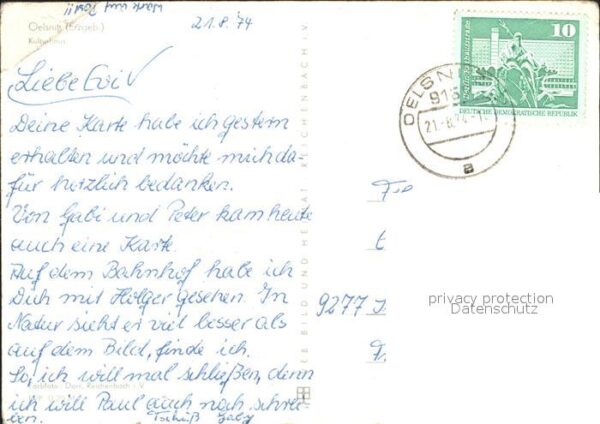 Oelsnitz (Erzgeb.)
21.8.74
Liebe Evi
Deine Karte habe ich gestern
erhalten und möchte mich da-
für herzlich bedanken.
Von Gabi und Peter kam heute
auch eine Karte.
Auf dem Bahnhof habe ich
Dich mit Holger gesehen. In
Natur sieht er viel besser als
auf dem Bild, finde ich.
So, ich will mal schließen, denn
ich will Paul auch noch schrei-
ben. Tschüß Gaby
VEB BILD UND HEIMAT REICHENBACH i. V.
Farbfoto: Darr, Reichenbach i. V.
10
DEUTSCHE DEMOKRATISCHE REPUBLIK
OELSN
915
21.-8.74-1
a
Fr
t
9277 J
F.
privacy protection
Datenschutz